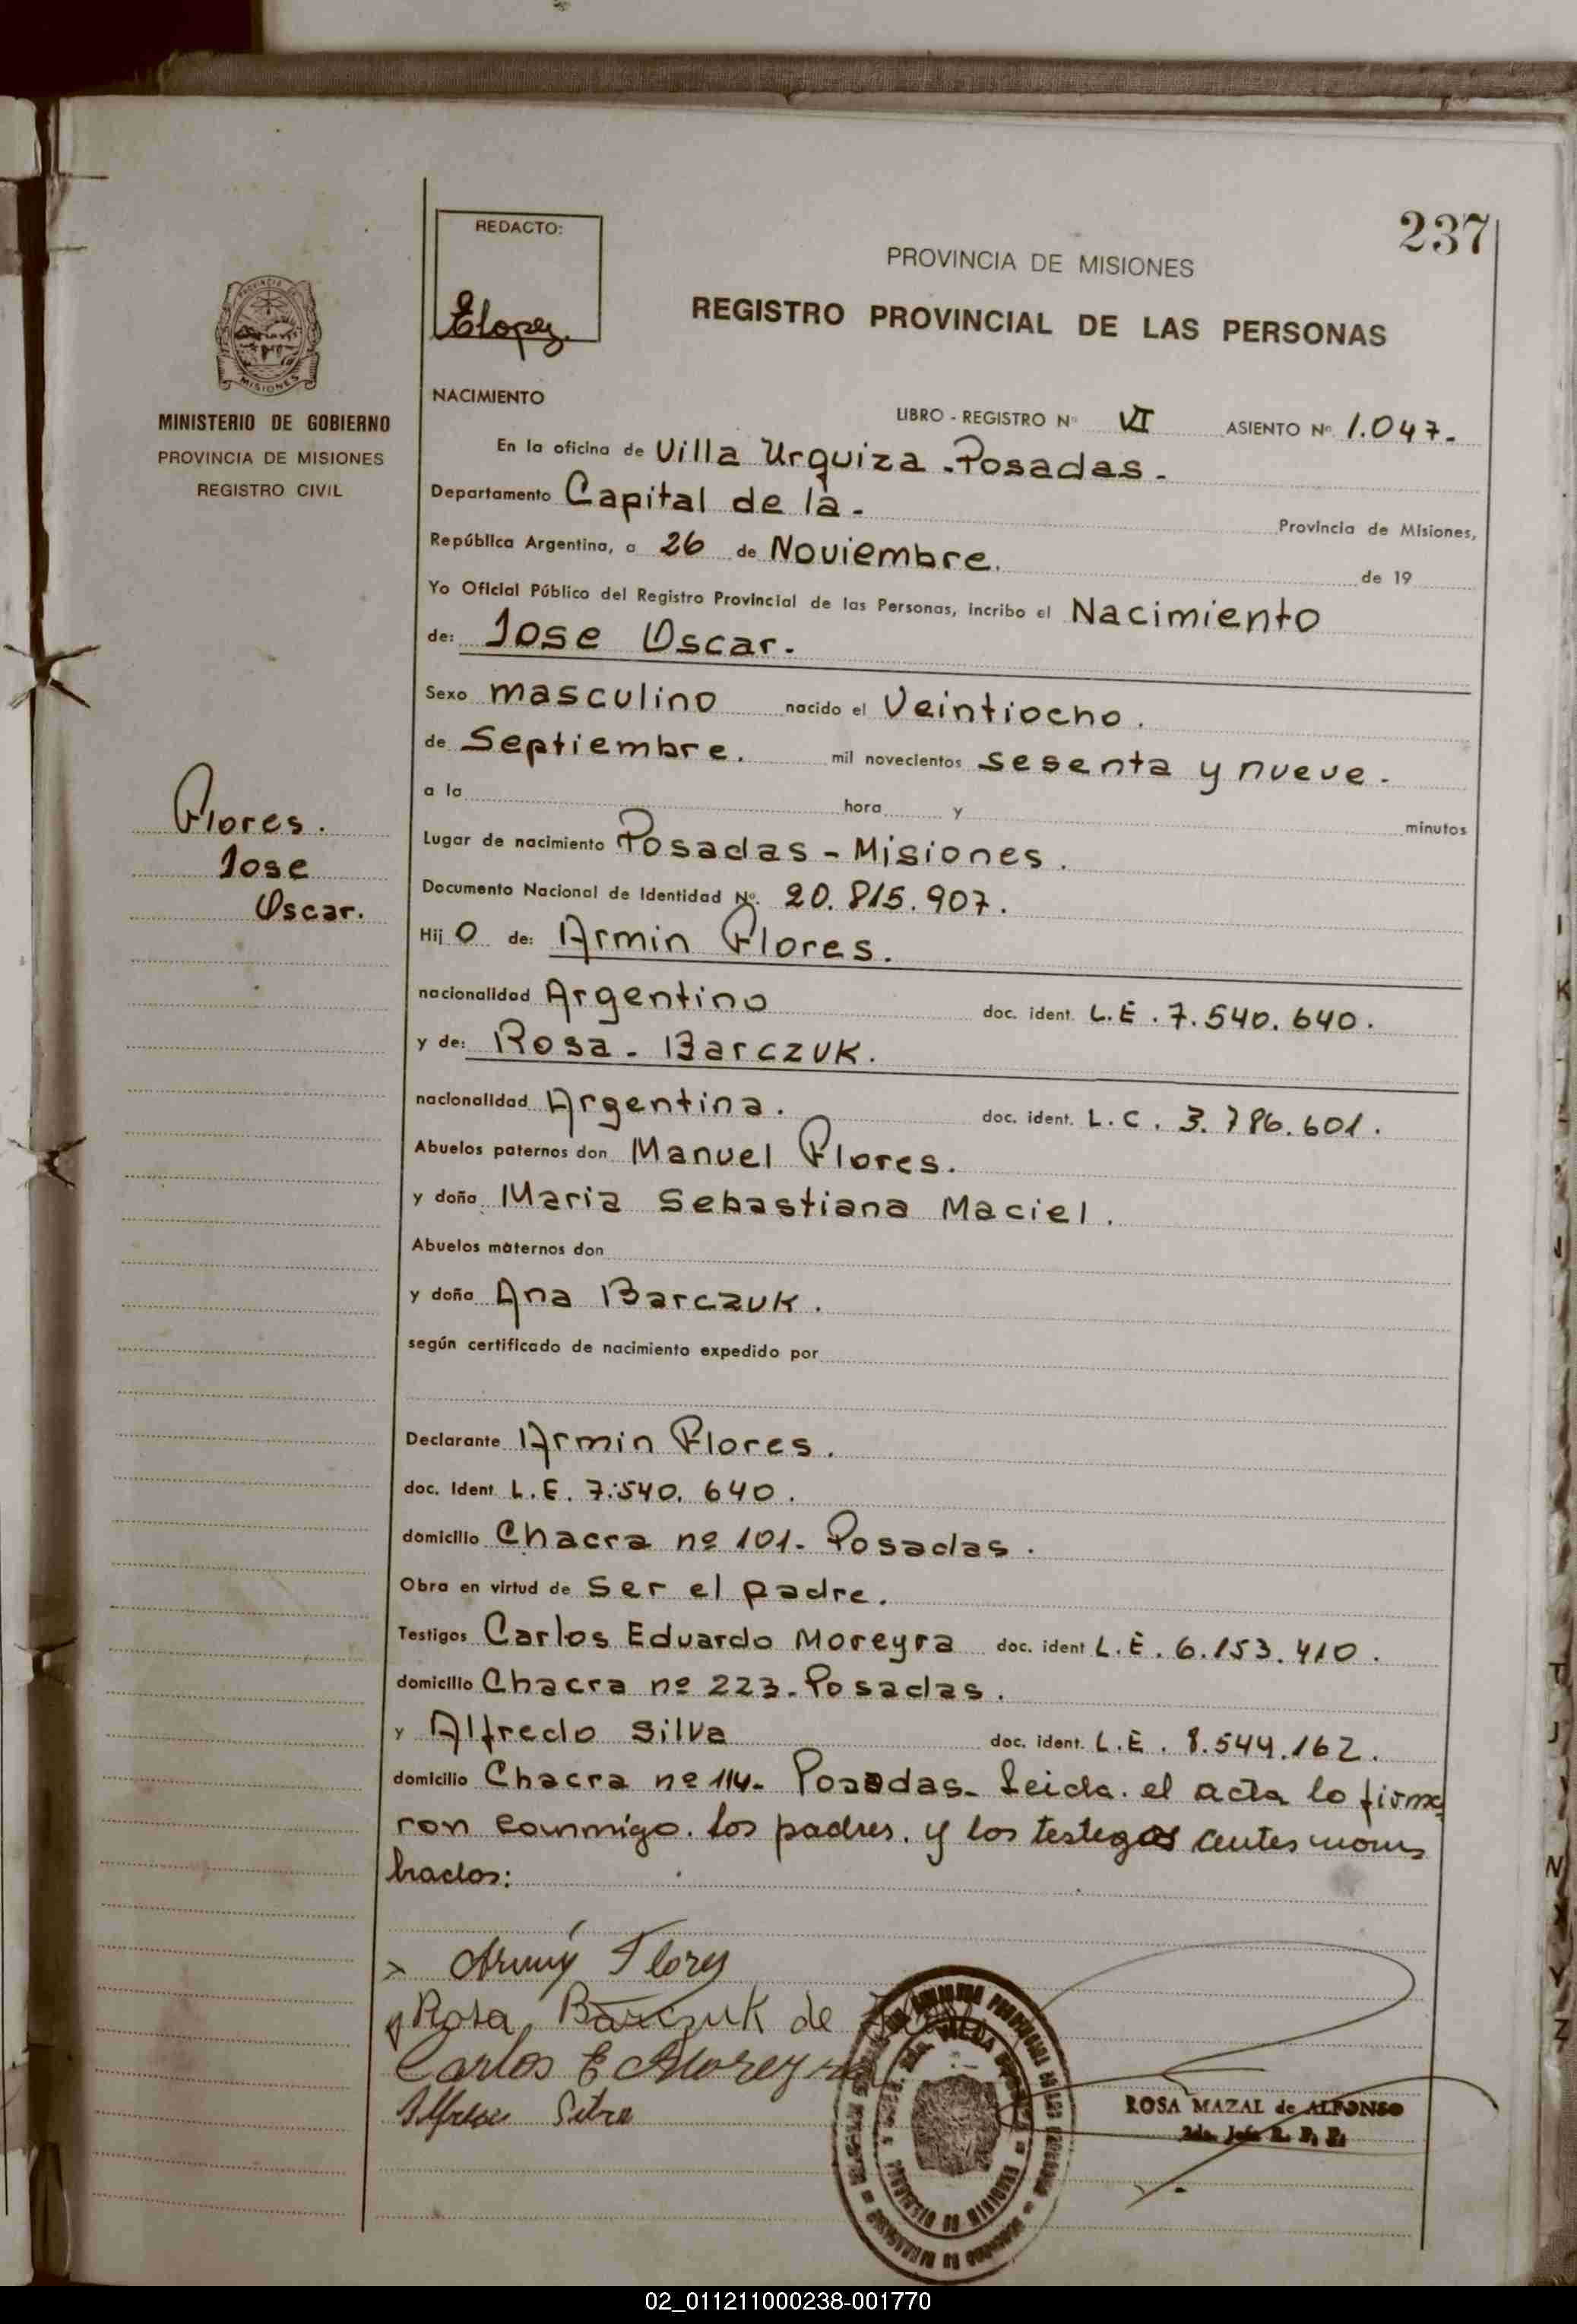 237
REDACTO:
ELopez.
PROVINCIA DE MISIONES
REGISTRO PROVINCIAL DE LAS PERSONAS
MISIONES
MINISTERIO DE GOBIERNO
PROVINCIA DE MISIONES
REGISTRO CIVIL
NACIMIENTO
LIBRO - REGISTRO Nº VI ASIENTO Nº 1.047.-
En la oficina de Villa Urquiza - Posadas -
Departamento Capital de la - Provincia de Misiones,
República Argentina, a 26 de Noviembre. de 19
Yo Oficial Público del Registro Provincial de las Personas, incribo el Nacimiento
de: Jose Oscar.
Sexo masculino nacido el Veintiocho.
de Septiembre. mil novecientos sesenta y nueve.
a la hora y minutos
Lugar de nacimiento Posadas - Misiones.
Documento Nacional de Identidad Nº. 20.815.907.
Hijo de: Armin Flores.
nacionalidad Argentino doc. ident. L.E. 7.540.640.
y de: Rosa - Barczuk.
nacionalidad Argentina. doc. ident. L.C. 3.786.601.
Abuelos paternos don Manuel Flores.
y doña Maria Sebastiana Maciel.
Abuelos maternos don
y doña Ana Barczuk.
según certificado de nacimiento expedido por
Declarante Armin Flores.
doc. Ident L.E. 7.540.640.
domicilio Chacra nº 101 - Posadas.
Obra en virtud de ser el padre.
Testigos Carlos Eduardo Moreyra doc. ident L.E. 6.153.410.
domicilio Chacra nº 223 - Posadas.
y Alfredo Silva doc. ident. L.E. 8.544.162.
domicilio Chacra nº 114 - Posadas - Leida el acta lo firma
ron conmigo los padres y los testigos antes nom
brados:
Flores.
Jose
Oscar.
Armin Flores
Rosa Barczuk de
Carlos E Moreyra
Alfredo Silva
ROSA MAZAL de ALFONSO
02_011211000238-001770